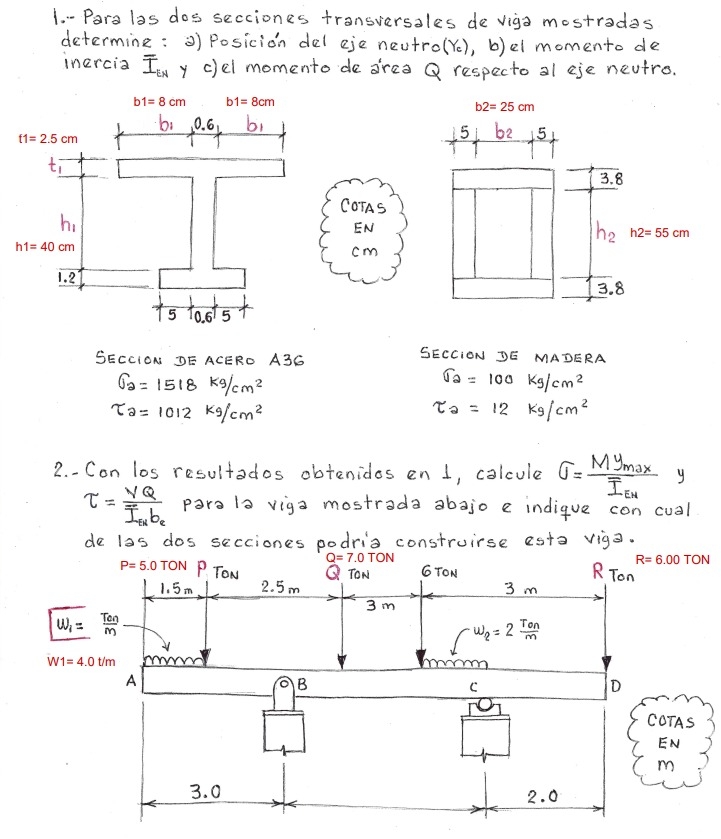 1.- Para las dos secciones transversales de viga mostradas
determine : a) Posición del eje neutro(Yc), b) el momento de
inercia ĪEN y c) el momento de área Q respecto al eje neutro.
b1= 8 cm b1= 8cm
b2= 25 cm
b1 0.6 b1
5 b2 5
t1= 2.5 cm
t1
3.8
COTAS
EN
cm
h1
h1= 40 cm
h2 h2= 55 cm
1.2
3.8
5 0.6 5
SECCION DE ACERO A36
σa = 1518 Kg/cm²
τa = 1012 Kg/cm²
SECCION DE MADERA
σa = 100 Kg/cm²
τa = 12 Kg/cm²
2.- Con los resultados obtenidos en 1, calcule σ = M ymax / ĪEN y
τ = VQ / ĪEN be para la viga mostrada abajo e indique con cual
de las dos secciones podría construirse esta viga.
P= 5.0 TON P TON
Q= 7.0 TON
Q TON
6 TON
R= 6.00 TON
R Ton
1.5 m 2.5 m 3 m 3 m
W1 = Ton/m
w2 = 2 Ton/m
W1= 4.0 t/m
A B C D
COTAS
EN
m
3.0 2.0